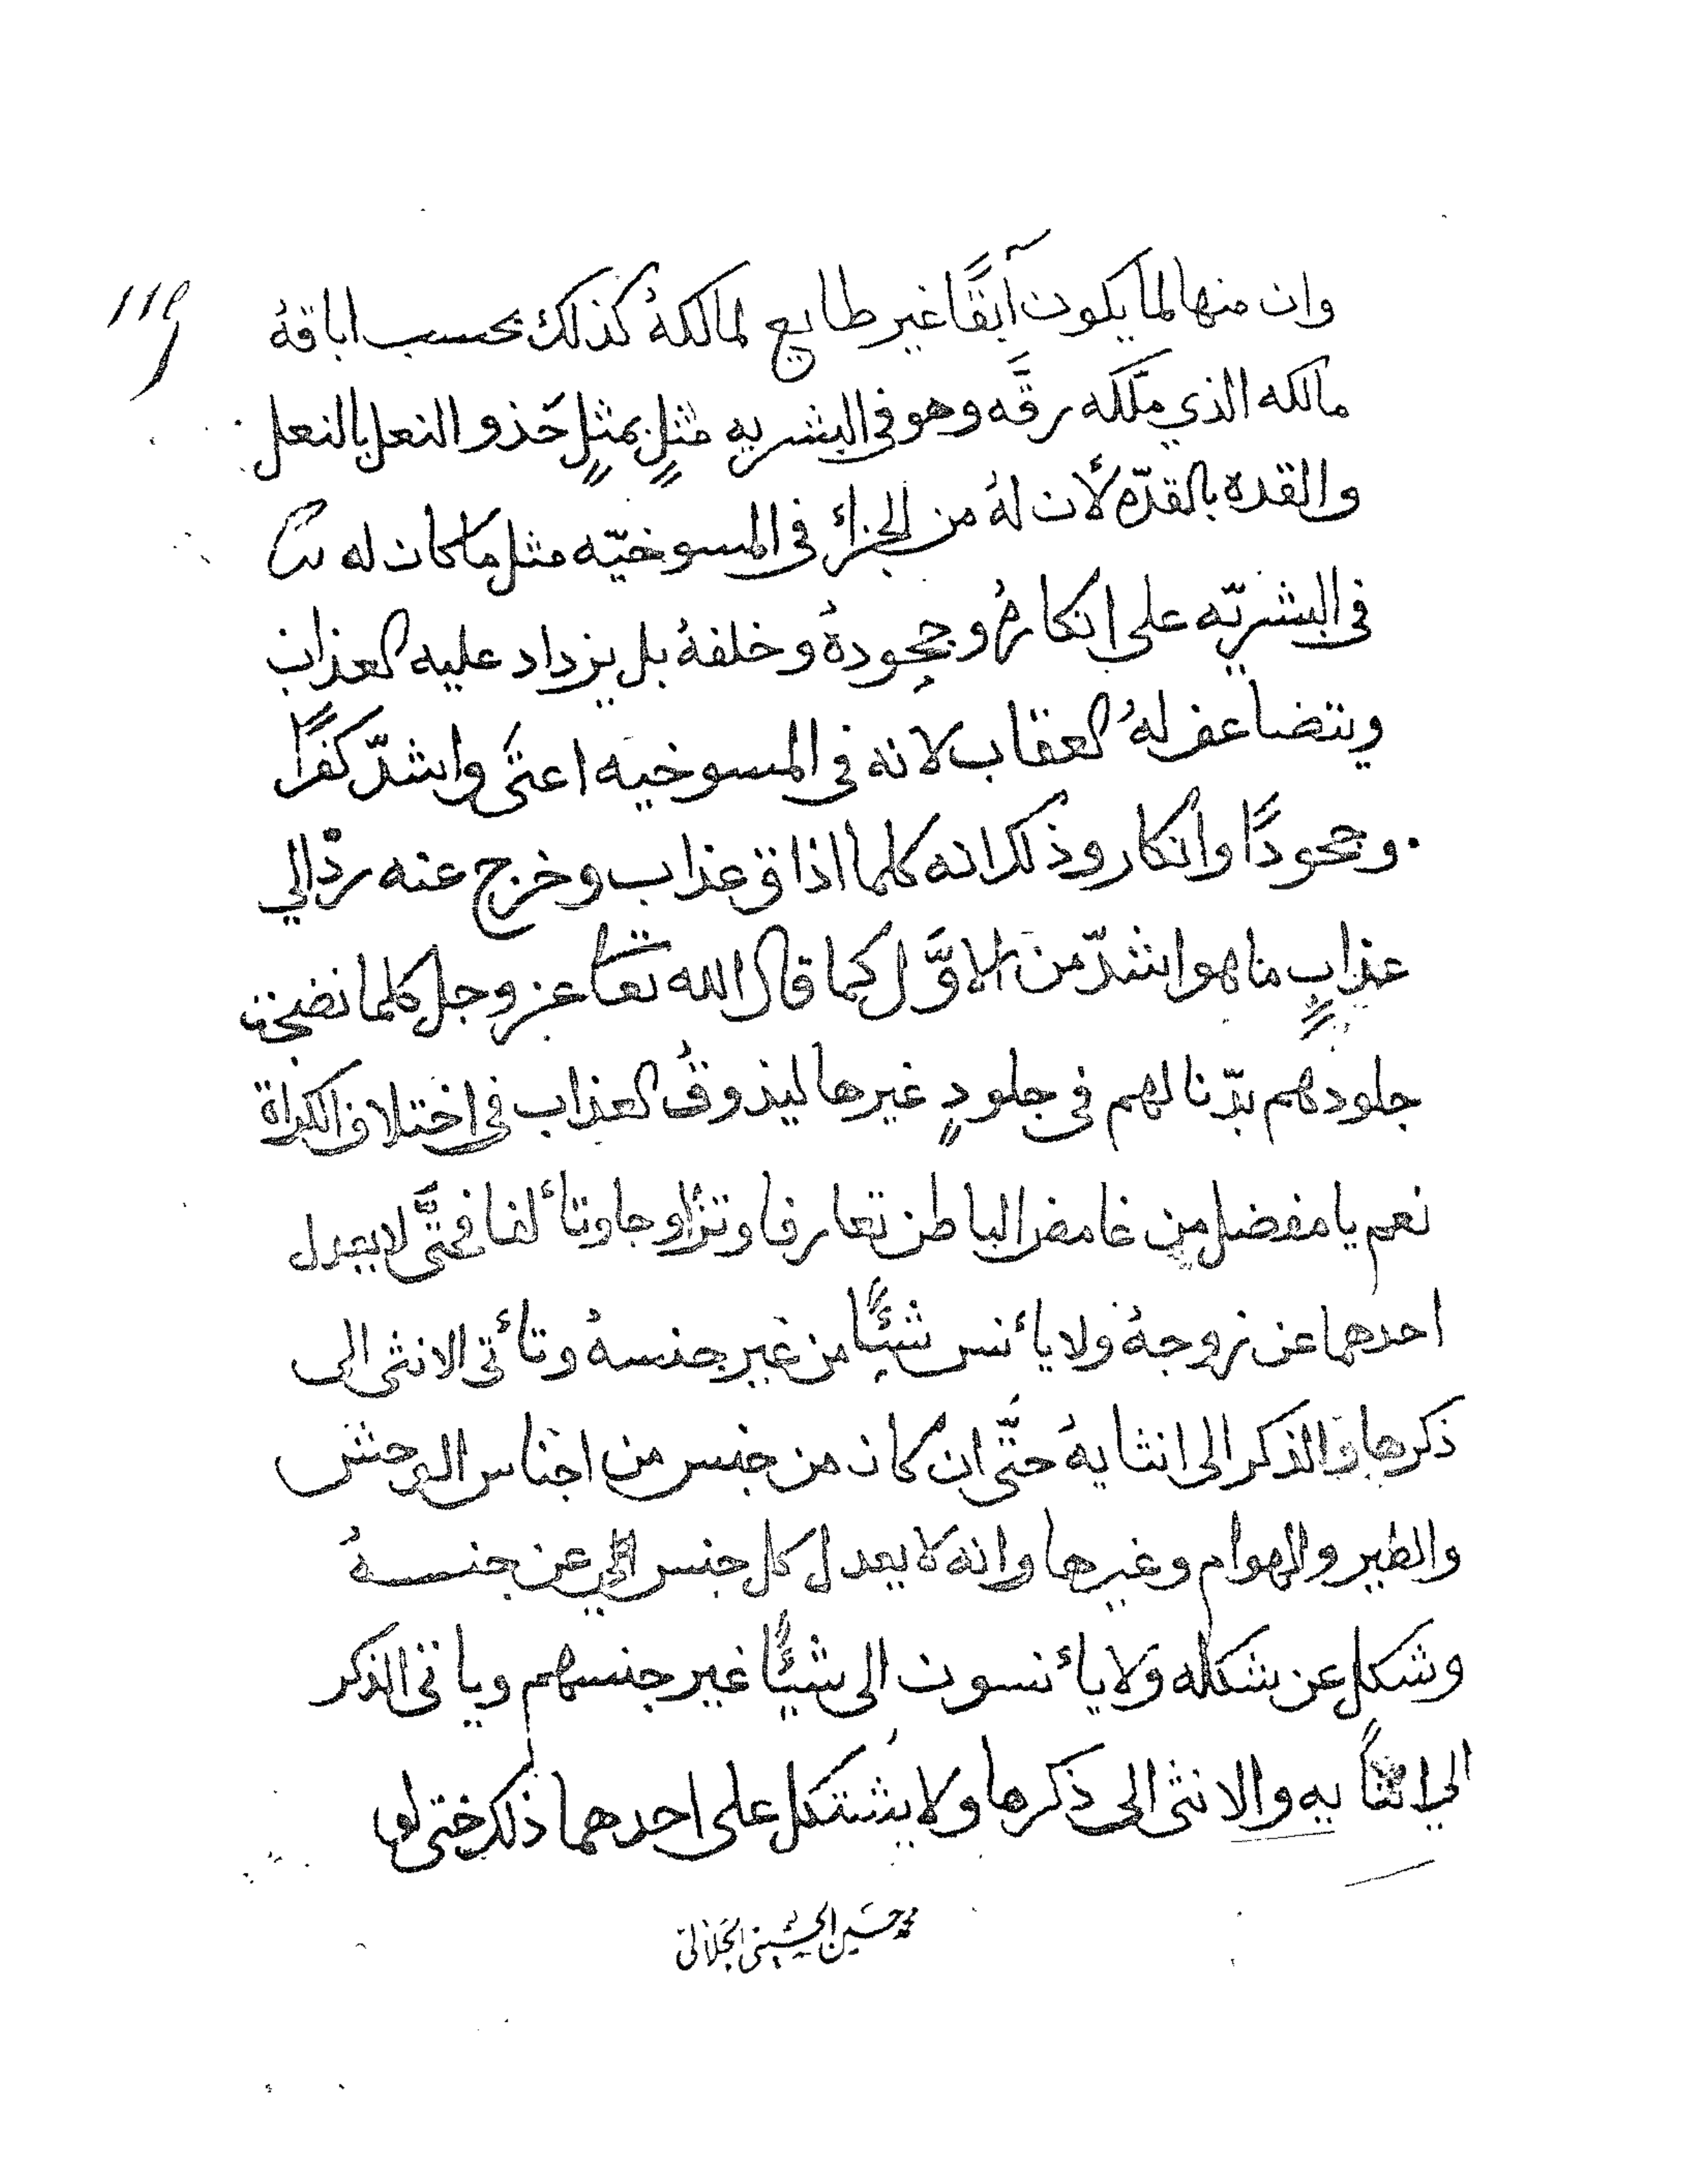 ١١٩
وان منها لما يكون آبقًا غير طايع لمالكهُ كذلك بحسب اباقهُ
مالكه الذي ملّكه رقَّه وهو في البشريه مثلٍ بمثلٍ حَذو النعل بالنعل
والقده بالقدّه لأن لهُ من الجزائ في المسوخيّه مثل ما كان له
في البشريّه على انكارهُ وجحودهُ وخلفهُ بل يزداد عليه العذاب
ويتضاعف لهُ العقاب لانه في المسوخيه اعتى واشدّ كفرًا
وجحودًا وانكار وذلك انه كلما اذاق عذاب وخرج عنه ردّ الي
عذابٍ ما هو اشدّ من الاوَّل كما قال الله تعا عز وجل كلما نضجت
جلودهم بدّنا لهم في جلودٍ غيرها ليذوقُ العذاب في اختلاف الكراة
نعم يا مفضل من غامض الباطن تعارفا وتزاوجا وتأالفا فحتَّى لا يعدل
احدهما عن زوجهُ ولا يأنس شيئًا من غير جنسهُ وتأتى الانثى الى
ذكرها والذكر الى انثايهُ حتَّى ان كان من جنس من اجناس الوحش
والطير والهوام وغيرها وانه لا يعدل كل جنس عن جنسهُ
وشكل عن شكله ولا يأنسون الى شيئًا غير جنسهم وياتى الذكر
الي انثايه والانثى الى ذكرها ولا يشتكل على احدهما ذلك حتى لو
محمد حسين الحسيني الجلالي